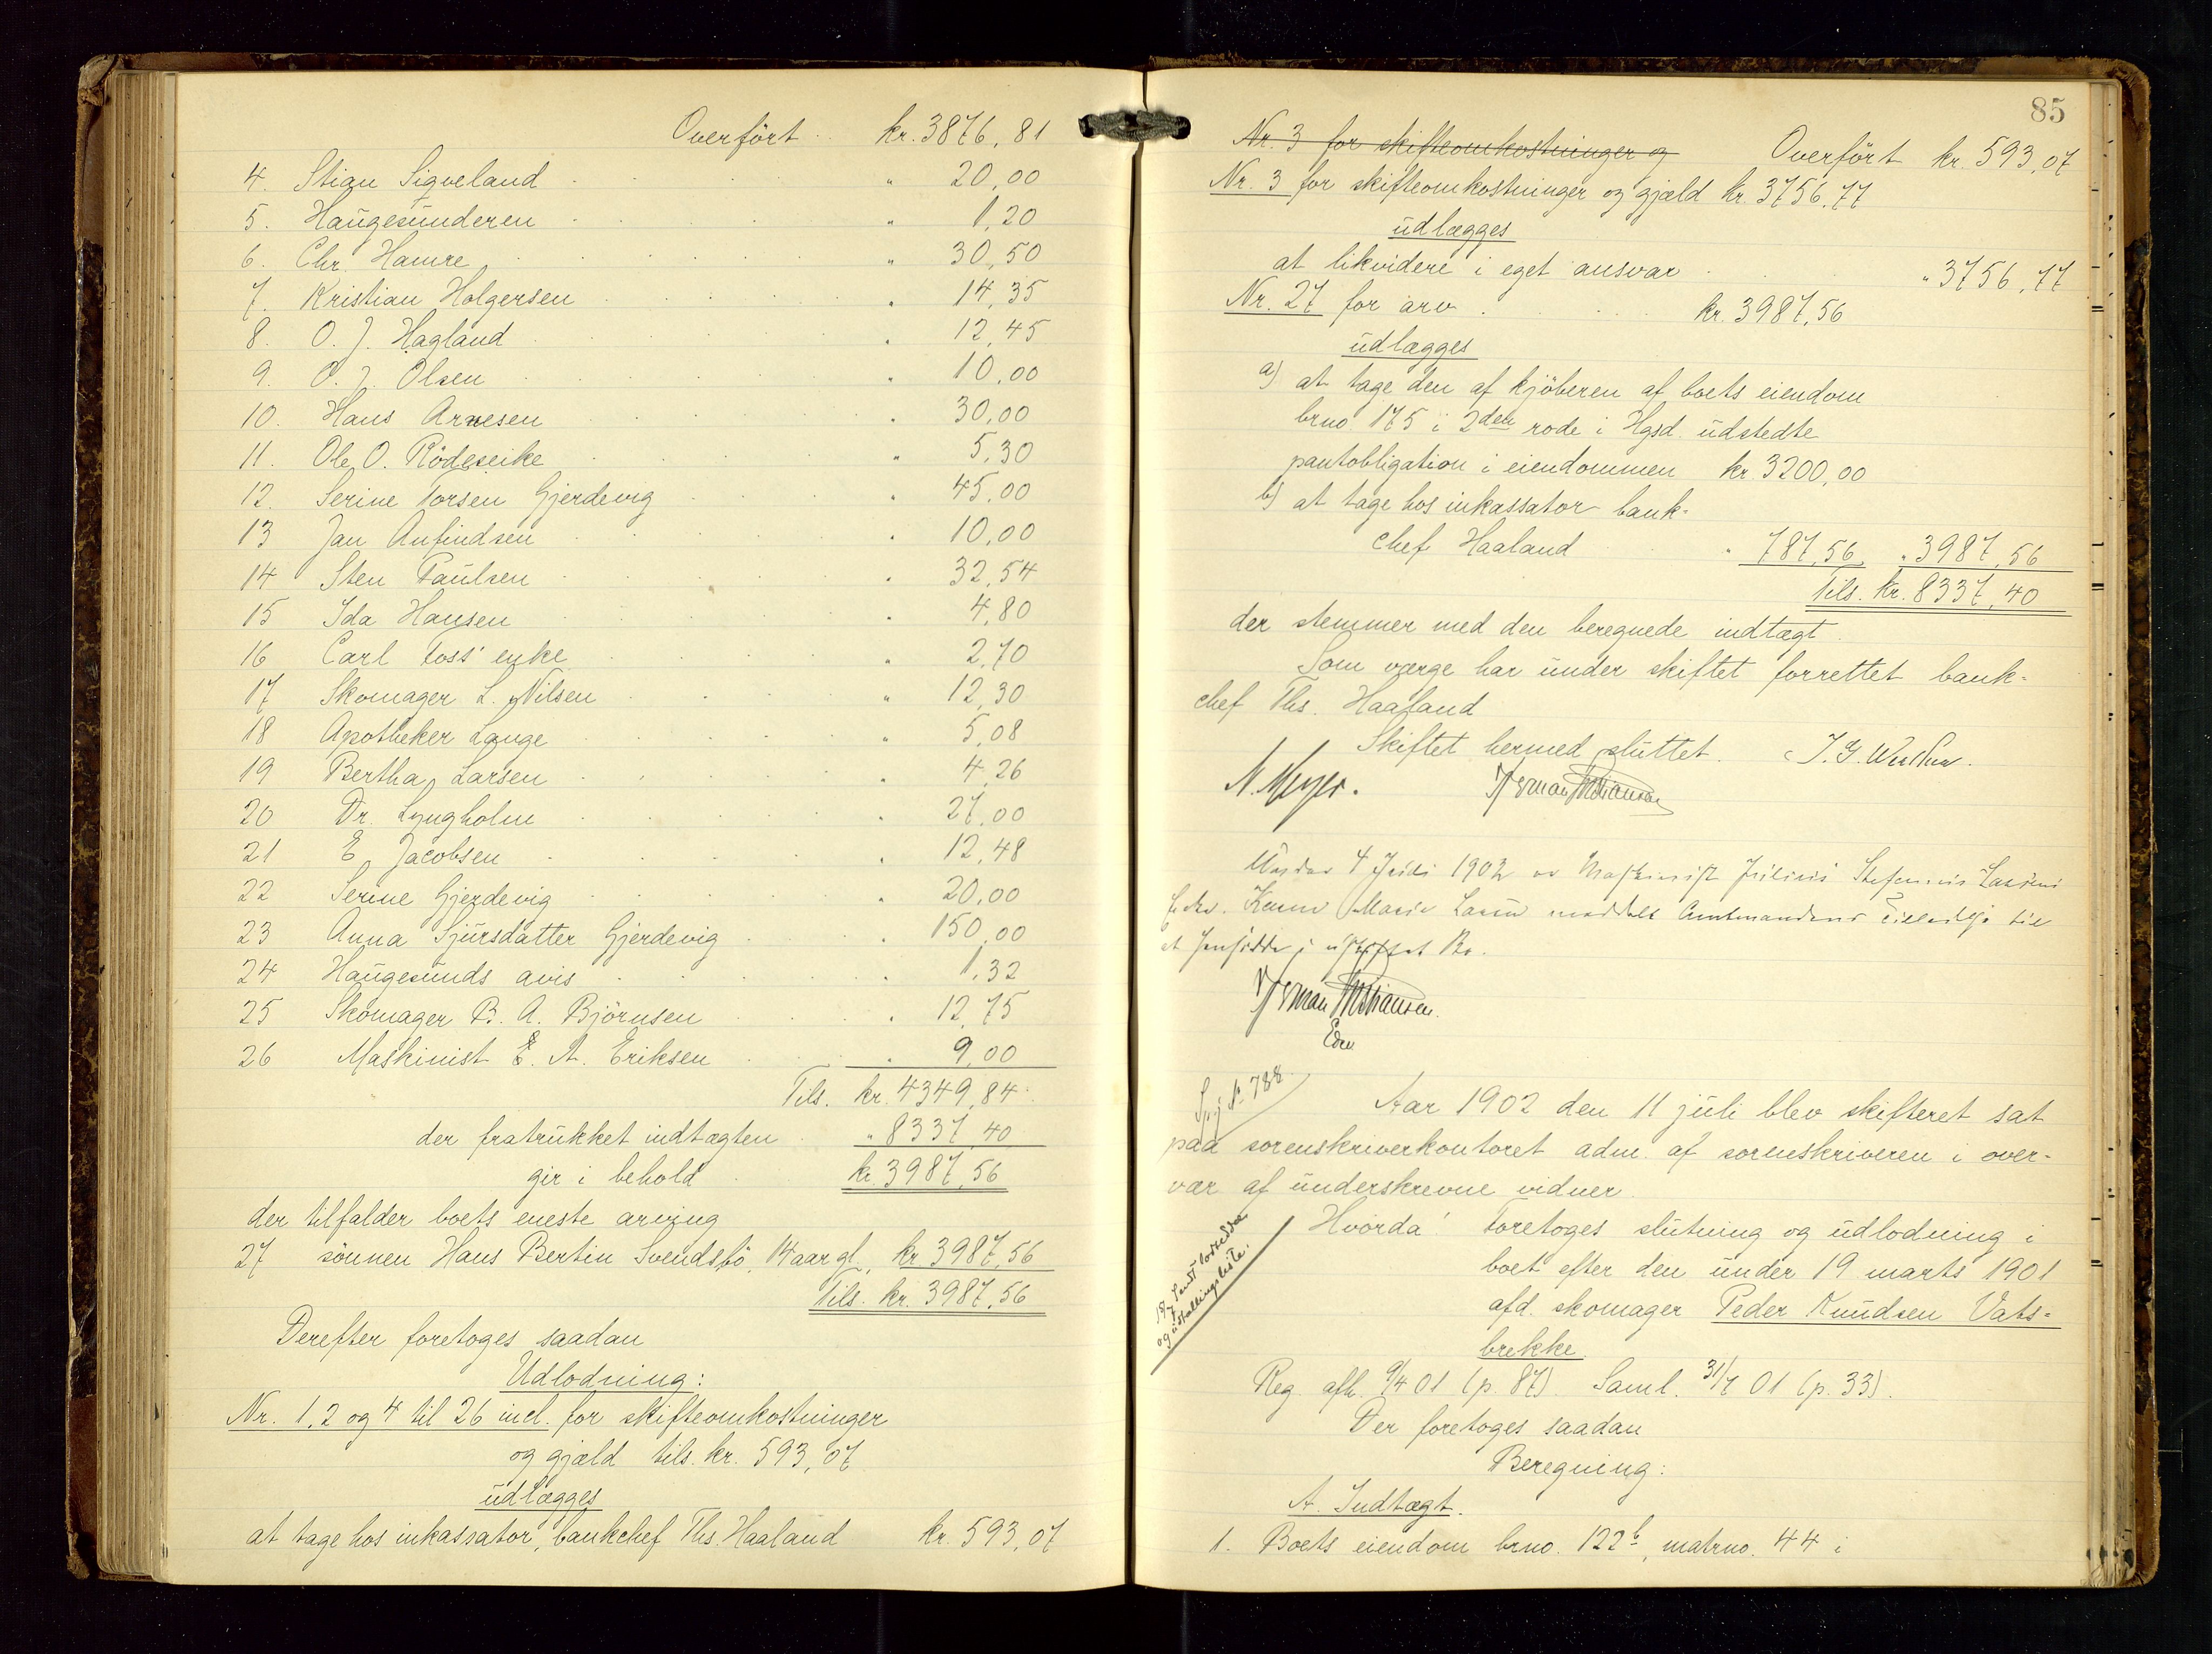 Overført kr. 3876,81
4. Stian Sigveland " 20,00
5. Haugesunderen " 1,20
6. Chr. Hamre " 30,50
7. Kristian Holgersen " 14,35
8. O. J. Hagland " 12,45
9. O. J. Olsen " 10,00
10. Hans Arnesen " 30,00
11. Ole O. Rödeseike " 5,30
12. Serine Torsen Gjerdevig " 45,00
13 Jan Anfindsen " 10,00
14 Sten Paulsen " 32,54
15 Ida Hansen " 4,80
16 Carl Foss' enke " 2,70
17 Skomager L. Nilsen " 12,30
18 Apotheker Lange " 5,08
19 Bertha Larsen " 4,26
20 Dr. Lyngholm " 27,00
21 E. Jacobsen " 12,48
22 Serine Gjerdevig " 20,00
23 Anna Sjursdatter Gjerdevig " 150,00
24 Haugesunds avis " 1,32
25 Skomager B. A. Björnsen " 12,75
26 Maskinist E. A. Eriksen " 9,00
Tils. kr. 4349,84
der fratrukket indtægten " 8337,40
gir i behold kr. 3987,56
der tilfalder boets eneste arving
27 sönnen Hans Bertin Svendsbö, 14 aar gl., kr. 3987,56
Tils. kr. 3987,56
Derefter foretoges saadan
Udlodning:
Nr. 1, 2 og 4 til 26 incl. for skifteomkostninger
og gjæld tils. kr. 593,07
udlægges
at tage hos inkassator, bankchef Ths. Haaland kr. 593,07
85
Nr. 3 for skifteomkostninger og Overfört kr. 593,07
Nr. 3 for skifteomkostninger og gjæld kr. 3756,77
udlægges
at likvidere i eget ansvar " 3756,77
Nr. 27 for arv kr. 3987,56
udlægges
a) at tage den af kjöberen af boets eiendom
brno. 175 i 2den rode i Hgsd. udstedte
pantobligation i eiendommen kr. 3200,00
b) at tage hos inkassator bank-
chef Haaland " 787,56 " 3987,56
Tils. kr. 8337,40
der stemmer med den beregnede indtægt.
Som værge har under skiftet forrettet bank-
chef Ths. Haaland
Skiftet hermed sluttet.
N. Meyer.
Under 4 Juli 1902 Maskinist Larsens
Karen Marie Larsen meddelt Amtmandens til
at i uskiftet Bo.
Aar 1902 den 11 juli blev skifteret sat
paa sorenskriverkontoret adm. af sorenskriveren i over-
vær af underskrevne vidner.
Hvorda! Foretoges slutning og udlodning i
boet efter den under 19 marts 1901
afd. skomager Peder Knudsen Vats-
brekke
Reg. afh. 9/4 01 (p. 87). Saml. 31/7 01 (p. 33).
Der foretoges saadan
Beregning:
A. Indtægt.
1. Boets eiendom brno. 122b, matrno. 44 i